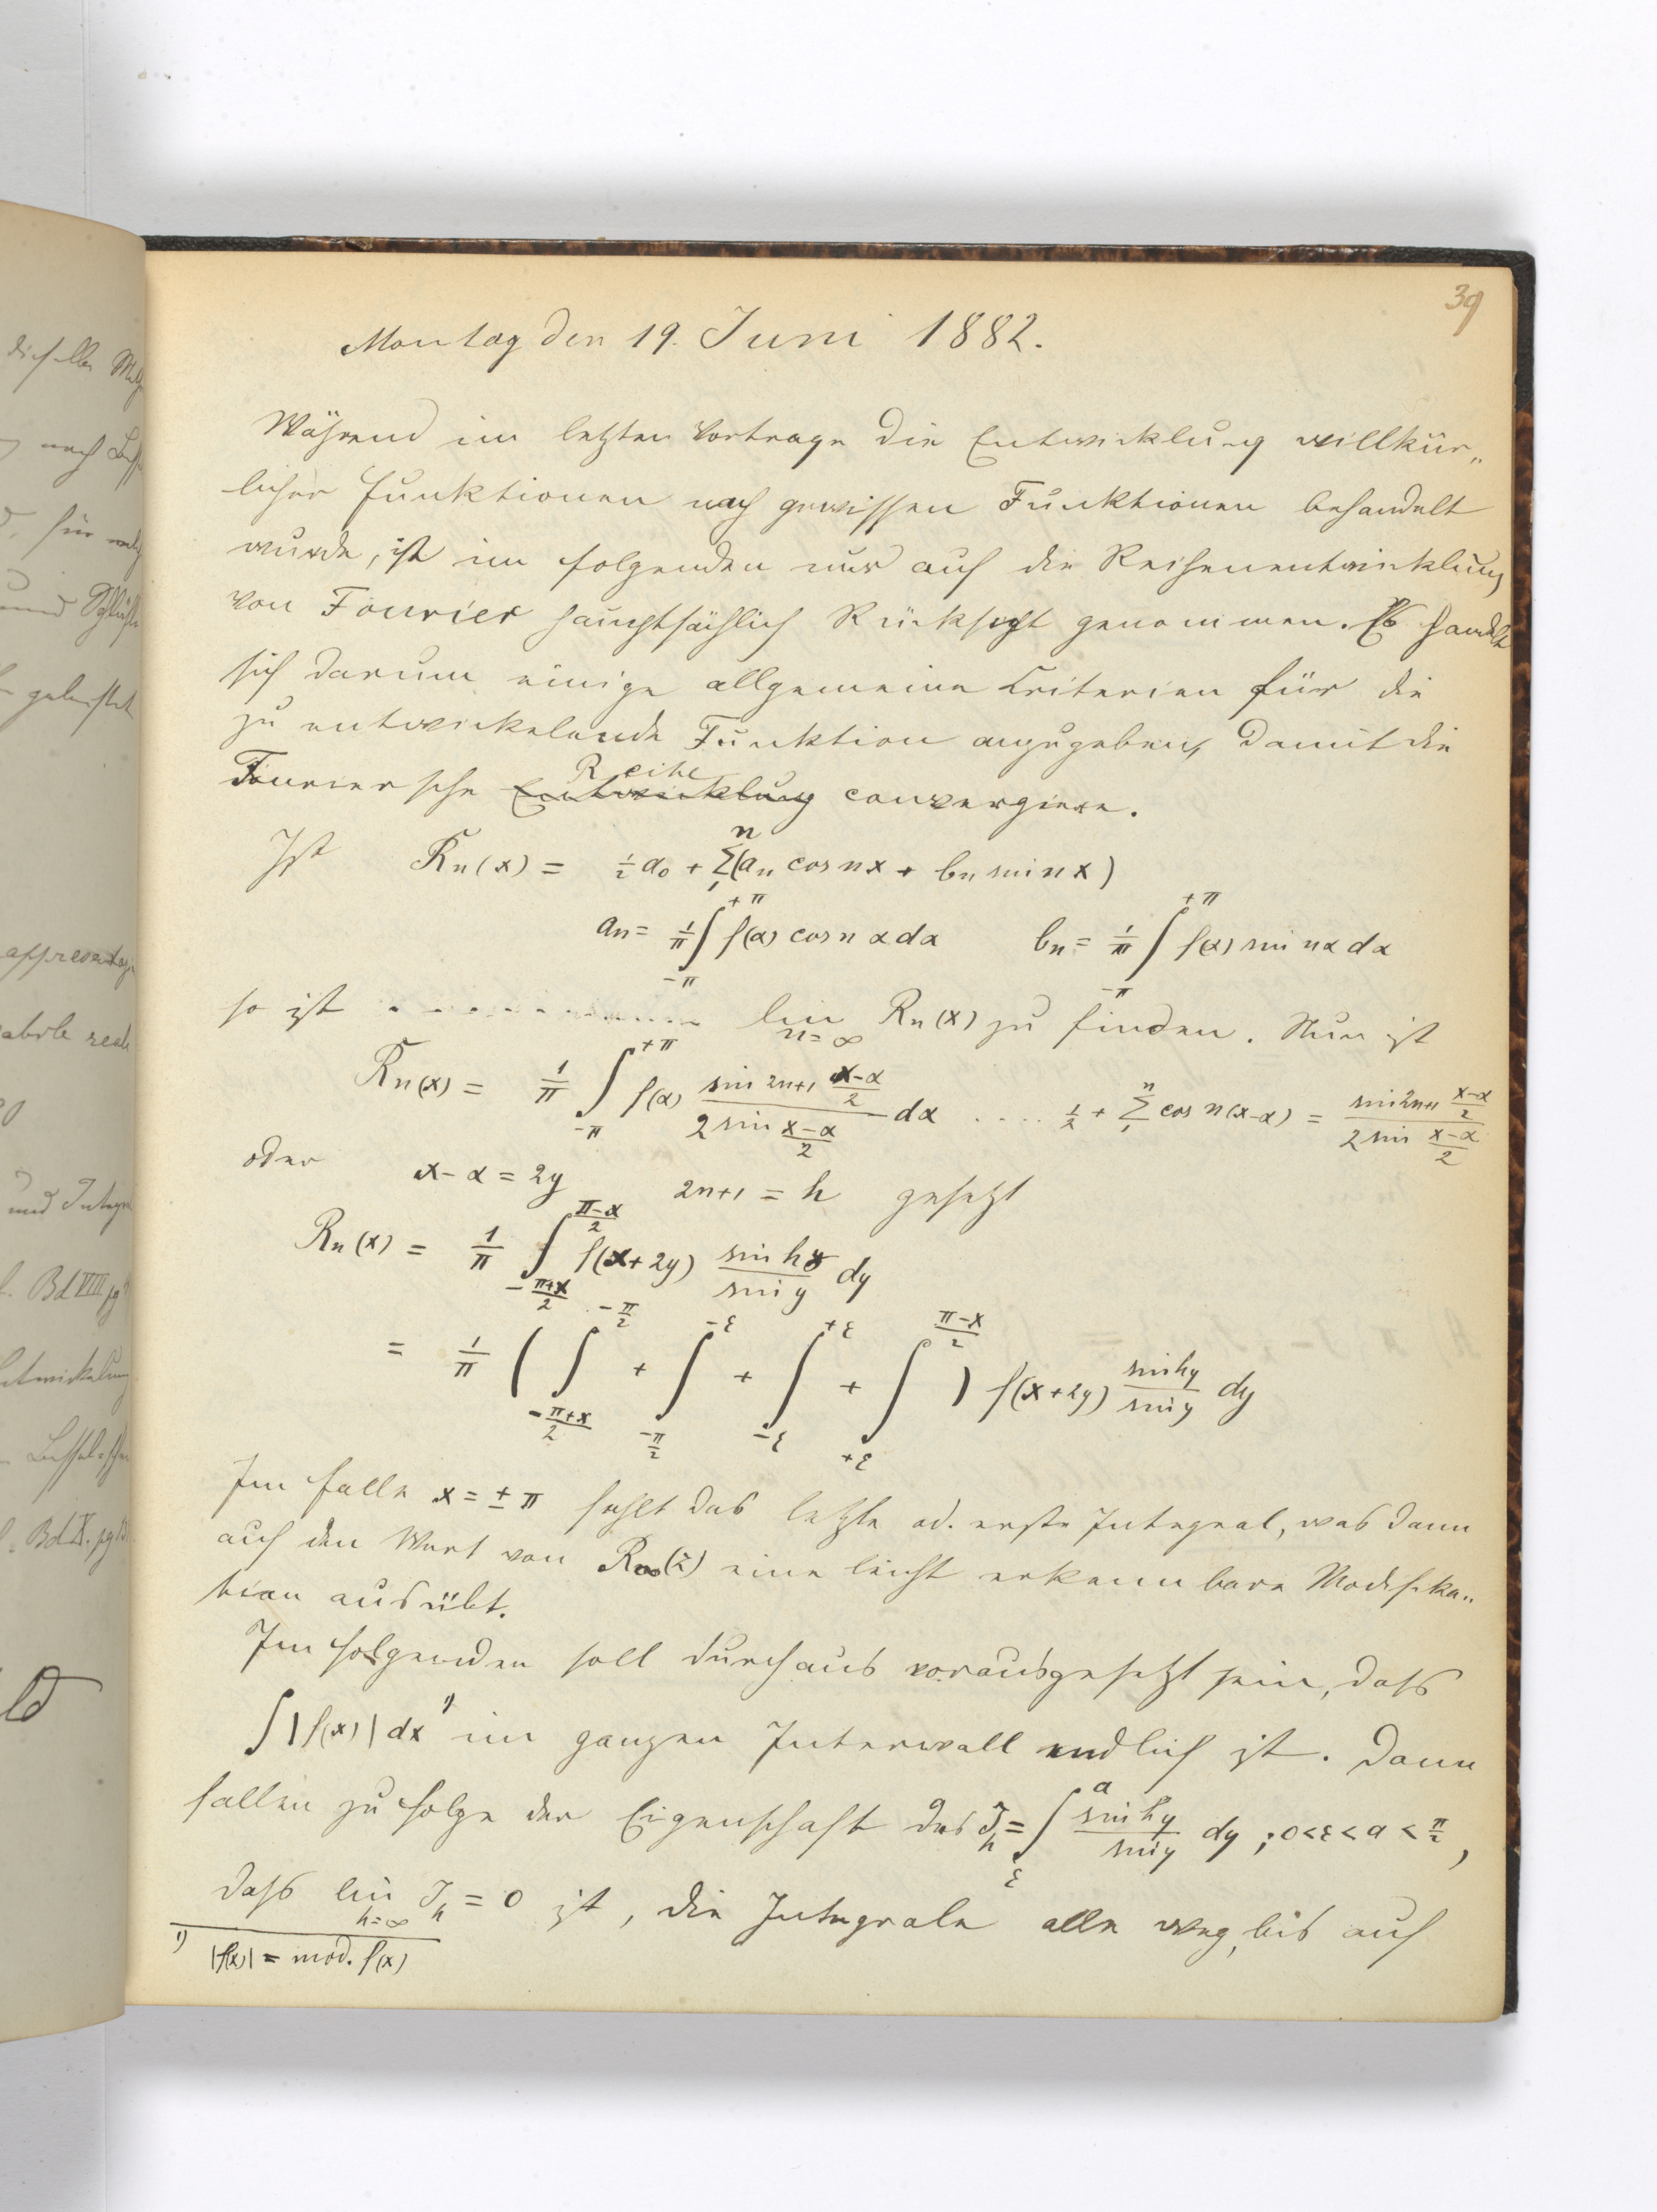 39
Montag den 19. Juni 1882.
Während im letzten Vortrage die Entwicklung willkür„
licher Funktionen nach gewissen Funktionen behandelt
wurde, ist im folgenden nur auf die Reihenentwicklung
von Fourier hauptsächlich Rücksicht genommen. Es handelt
sich darum einige allgemeine Criterien für die
zu entwickelnde Funktion anzugeben, damit die
Reihe
Fourier'sche Entwicklung convergiere.
Ist Rn(x) = ½ a₀ + Σ₁ⁿ (an cos nx + bn sin nx)
an = 1/π ∫_{-π}^{+π} f(α) cos n α dα bn = 1/π ∫_{-π}^{+π} f(α) sin nα dα
so ist lim_{n=∞} Rn(x) zu finden. Nun ist
Rn(x) = 1/π ∫_{-π}^{+π} f(α) (sin 2n+1 (x-α)/2)/(2 sin (x-α)/2) dα .... ½ + Σ₁ⁿ cos n(x-α) = (sin 2n+1 (x-α)/2)/(2 sin (x-α)/2)
oder x-α = 2y 2n+1 = h gesetzt
Rn(x) = 1/π ∫_{-(π+x)/2}^{(π-x)/2} f(x+2y) (sin hy)/(sin y) dy
= 1/π ( ∫_{-(π+x)/2}^{-π/2} + ∫_{-π/2}^{-ε} + ∫_{-ε}^{+ε} + ∫_{+ε}^{(π-x)/2} ) f(x+2y) (sin hy)/(sin y) dy
Im Falle x = ± π fehlt das letzte od. erste Integral, was dann
auf den Wert von R∞(z) eine leicht erkennbare Modifika„
tion ausübt.
Im folgenden soll durchaus vorausgesetzt sein, dass
∫|f(x)| dx ¹⁾ im ganzen Intervall endlich ist. Dann
fallen zu folge der Eigenschaft des J_h = ∫_ε^a (sin hy)/(sin y) dy ; 0<ε<a<π/2,
dass lim_{h=∞} J_h = 0 ist, die Integrale alle weg, bis auf
¹⁾ |f(x)| = mod. f(x)